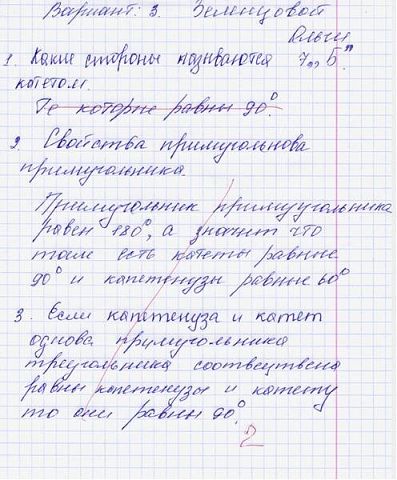 Вариант: 3. Зеленцовой
Ольги
1. Какие стороны называются 7„Б"
котетом.
Те которые равны 90°.
2. Свойства примугольнова
примугольника.
Примугольник примугольника
равен 180°, а значит что
тоже есть котеты равные
90° и капетенузы равные 60°
3. Если капетенуза и катет
однова примугольника
треугольника соотвецтвена
равны капетенузы и катету
то они равны 90°.
2